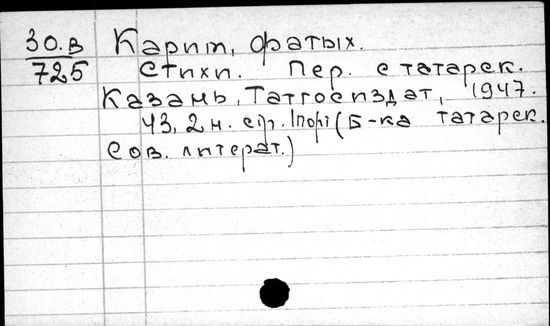 30.в Карим, Фатых.
725 Стихи. Пер. с татарск.
Казань, Татгосиздат, 1947.
43, 2 н. с., 1 порт (Б-ка татарск.
Сов. литерат.)